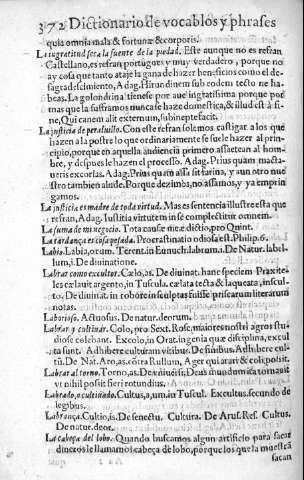 372 Dictionario de vocablos y phrases
quia omnia mala & fortunæ & corporis.
La ingratitud seca la fuente de la piedad. Este aunque no es refran
Castellano, es refran portugues y muy verdadero, porque no
ay cosa que tanto ataje la gana de hazer beneficios como el de-
sagradescimiento, Adag. Hirundinem sub eodem tecto ne ha-
beas. La golondrina tienese por aue ingratissima porque por
mas que la suframos nunca se haze domestica, & illud est à fi-
ne, Qui canem alit externum,
La justicia de peraluillo. Con este refran solemos castigar a los que
hazen a la postre lo que ordinariamente se suele hazer al prin-
cipio, porque en aquella audiencia primero assaetean al hom-
bre, y despues le hazen el processo. Adag. Prius quam macta-
ueris excorias. Adag. Prius quam assa sit farina, y aun otro nue
stro tambien alude. Porque dezimos, no assamos, y ya emprin
gamos.
La justicia es madre de toda virtud. Mas es sentencia illustre esta que
refran, Adag. Iustitia virtutem in se complectitur omnem.
La suma de mi negocio. Tota causæ meæ dictio, pro Quint.
La tardança es cosa pesada. Procrastinatio odiosa est. Philip. 6.
Labio. Labia, orum. Terent. in Eunuch. labrum. i. De Natur. label-
lum, i. De diuinatione.
Labrar como escultor. Cælo, as. De diuinat. hanc speciem Praxite-
les cælauit argento, in Tuscula. cælata tecta & laqueata, insculp-
to, De diuinat. in robore insculptas fuisse priscarum literarum
notas.
Laborioso. Actuosus. De natur. deorum.
Labrar y cultiuar. Colo, pro Sext. Rosc. maiores nostri agros stu-
diose colebant. Excolo, in Orat. ingenia quæ disciplina, excul
ta sunt. Adhibere culturam vitibus. De finibus. Adhibere cul-
tū. De Nat. Aro, as. cōtra Rullum, Ager qui arari & coli possit.
Labrar al torno. Torno, as. De vniuersi; Deus mundum ita tornauit
vt nihil possit fieri rotundius.
Labrado, o cultiuado. Cultus, a, um. in Tuscul. Excultus. secundo de
legibus.
Labrança. Cultio, is. De senectu. Cultura. De Arus. Res. Cultus.
De natur. deor.
La cabeça del lobo. Quando buscamos algun artificio para sacar
dineros le llamamos cabeça de lobo, porque los que la muestrā
sacan